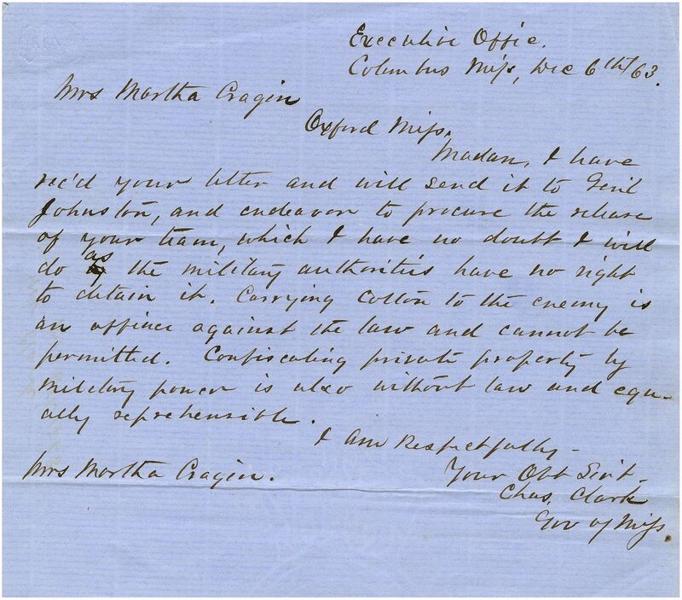 Executive Offic.
Columbus Miss, Dec 6th/63.
Mrs Martha Cragin
Oxford Miss.
Madam, I have
rec'd your letter and will send it to Genl
Johnston, and endeavor to procure the release
of your team, which I have no doubt I will
do as the military authorities have no right
to detain it. Carrying Cotton to the enemy is
an offence against the law and cannot be
permitted. Confiscating private property by
military power is also without law and equ-
ally reprehensible.
I am Respectfully -
Your Obt Servt.
Mrs Martha Cragin.
Chas. Clark
Gov of Miss.